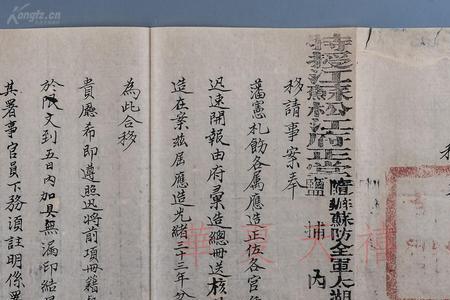 特授江蘇松江府正堂
隨辦蘇防全軍太湖
鹽埔內
移請事案奉
藩憲札飭各属應造正佐各官
迅速開報由府彙造總冊送核
造在案茲届應造光緒三十三年分
為此合移
貴廳希即遵照迅將前項冊籍
於文到五日內加具無漏印結
其署事官員下務須註明係署
華夏天禧
Kongfz.cn